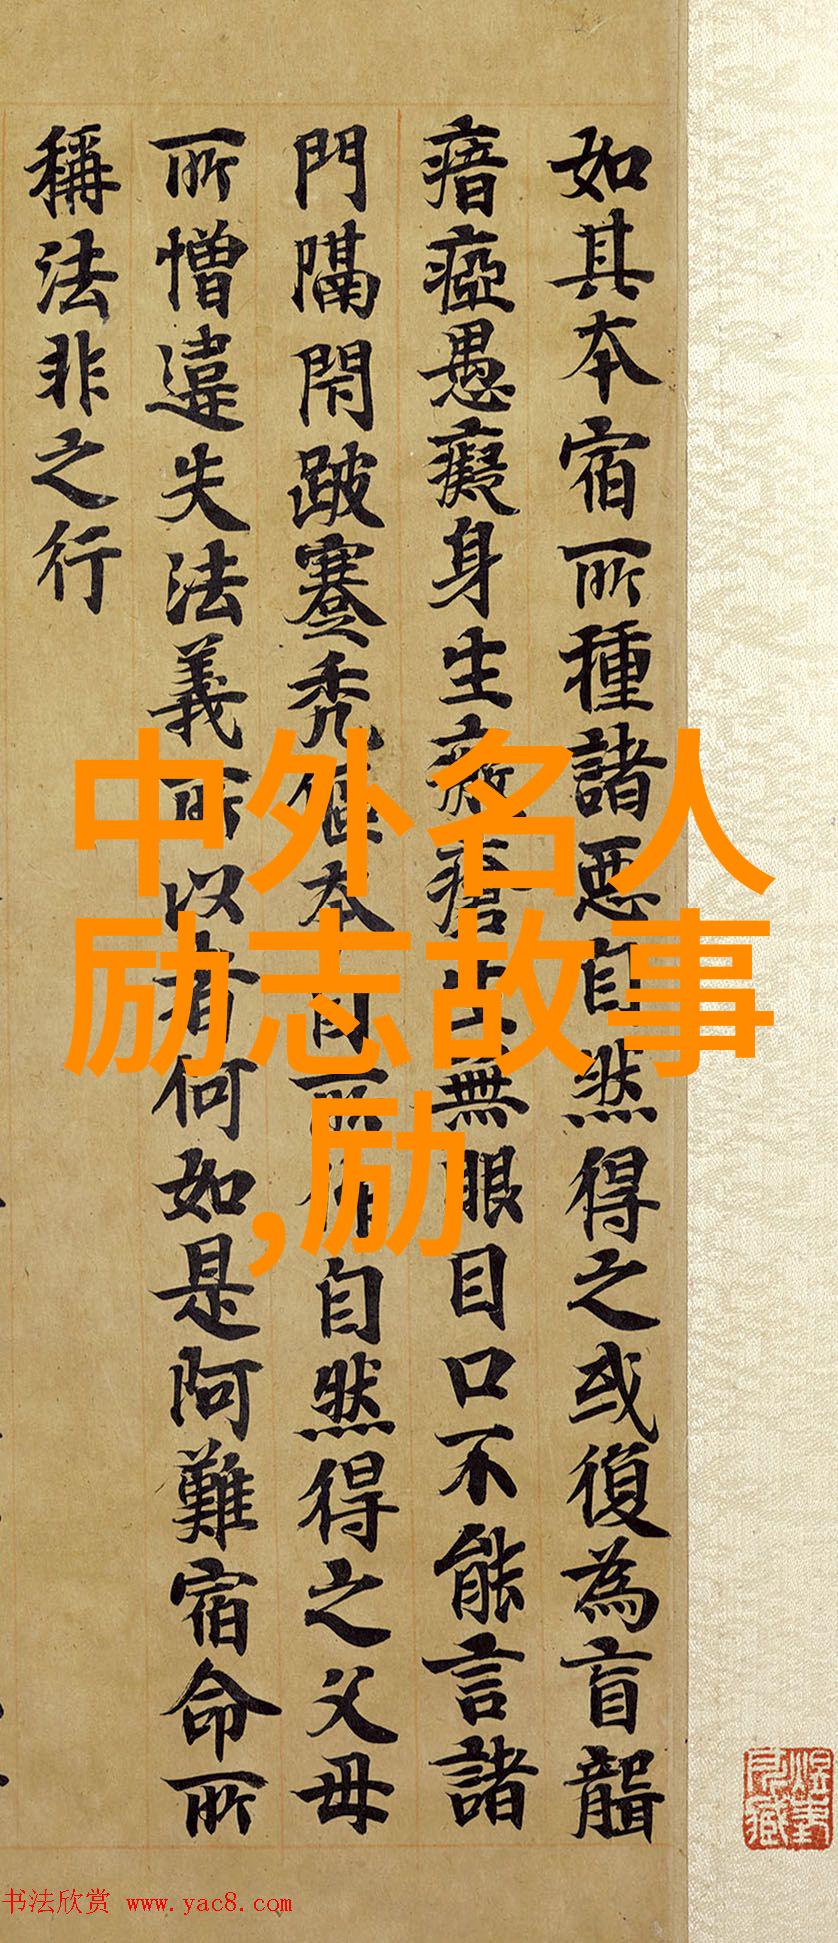 如其本宿所種諸惡自然得之或復為盲聾
瘖瘂愚癡身生瘡生無眼目口不能言諸
門隔閇跛蹇禿傴本自所作自然得之父母
所憎違失法義所以者何如是阿難宿命所
稱法非之行
中外名人
励志故事
,励
书法欣赏 www.yac8.com